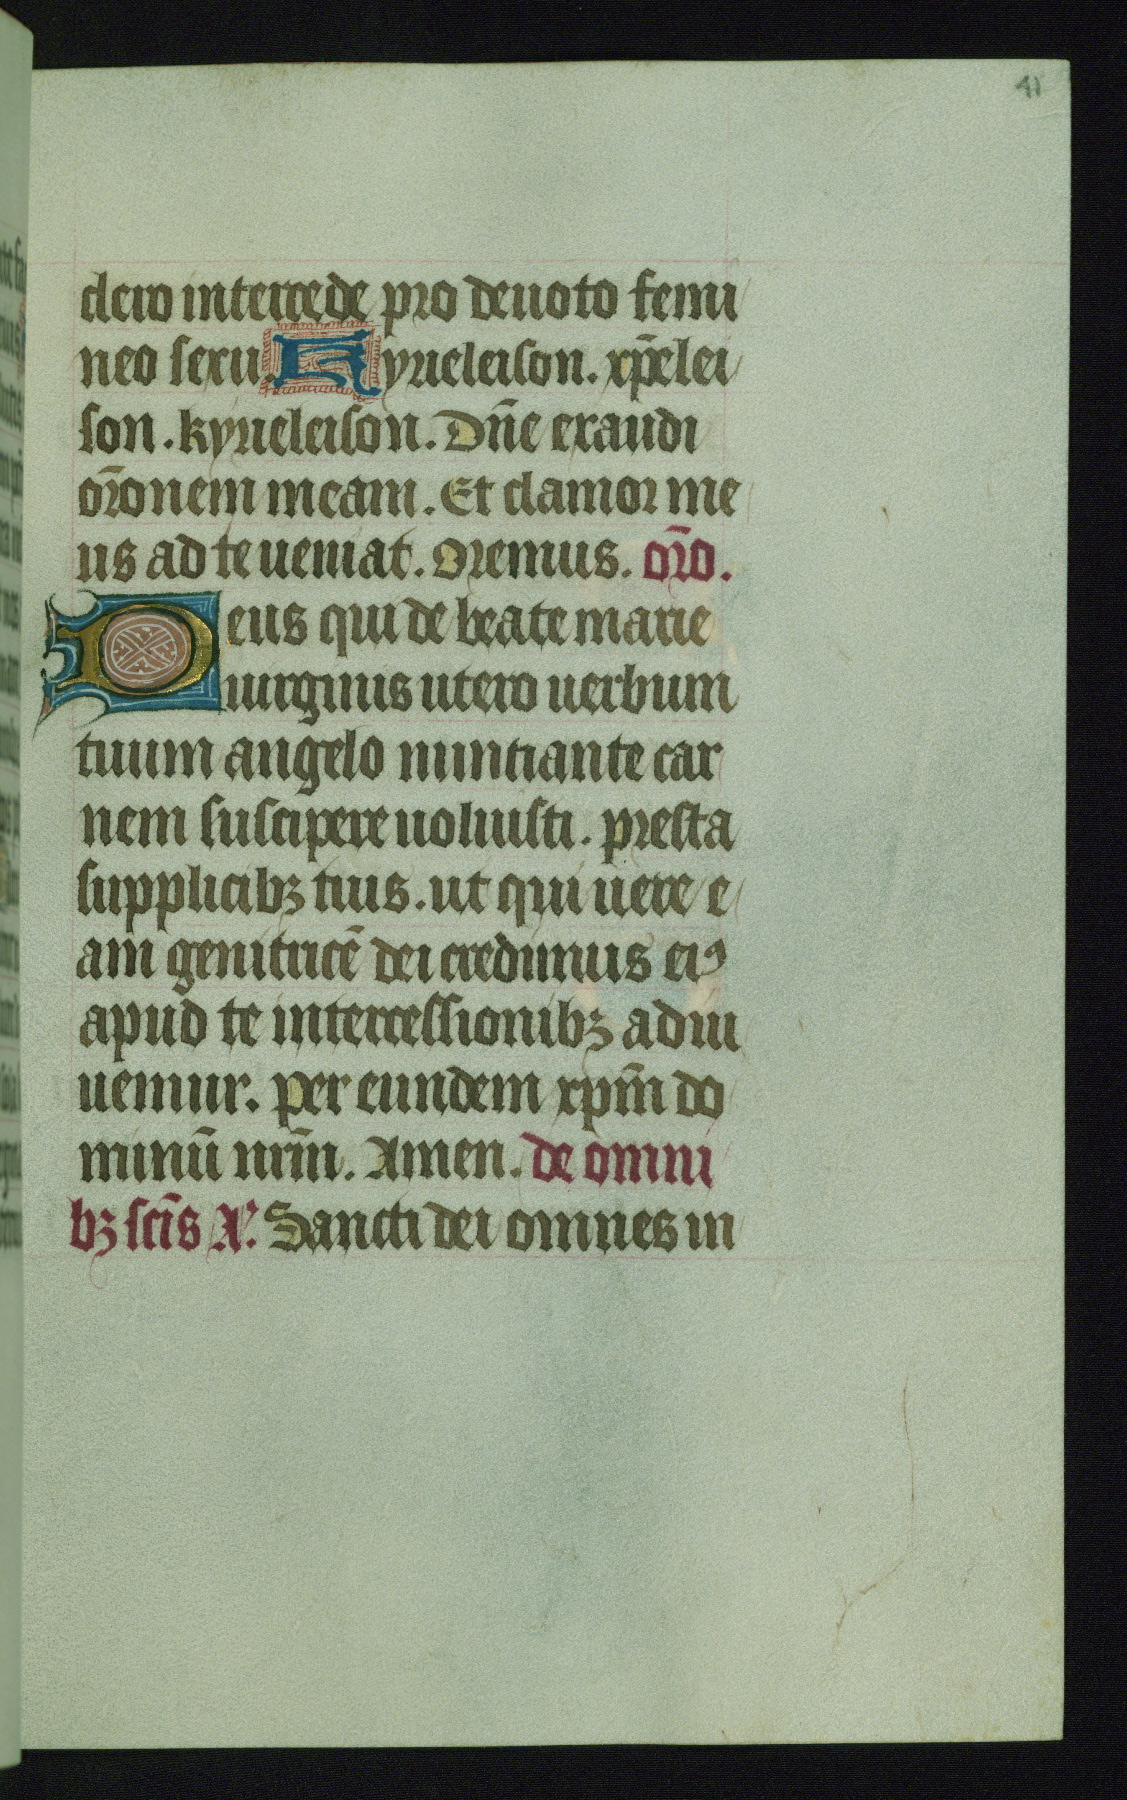 41
clero intercede pro deuoto femi
neo sexu. Kyrieleison. xp̄elei
son. kyrieleison. Dn̄e exaudi
or̄onem meam. Et clamor me
us ad te ueniat. Oremus. or̄o.
Deus qui de beate marie
uirginis utero uerbum
tuum angelo nuntiante car
nem suscipere uoluisti. presta
supplicibꝫ tuis. ut qui uere e
am genitricē dei credimus eiꝰ
apud te intercessionibꝫ adiu
uemur. per eundem xpm̄ do
minū nr̄m. Amen. de omni
bꝫ scīs Aᵃ. Sancti dei omnes in